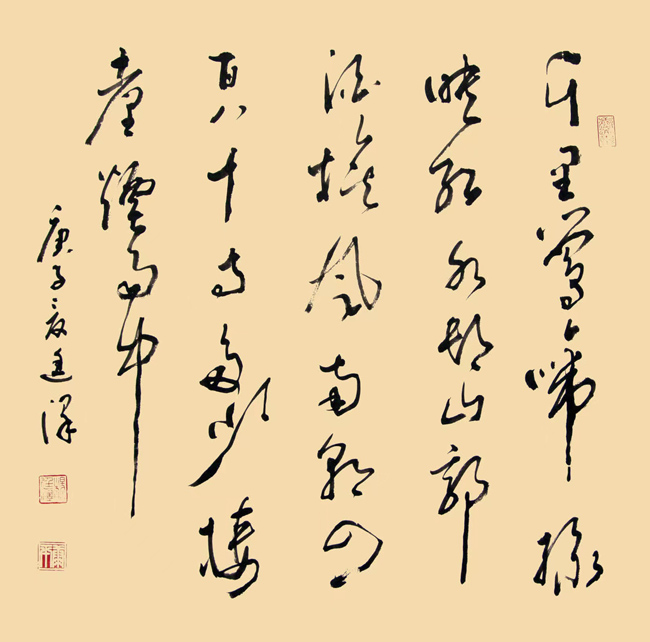 千里莺啼绿
映红水村山郭
酒旗风南朝四
百八十寺多少楼
台烟雨中
庚子之夏廷泽